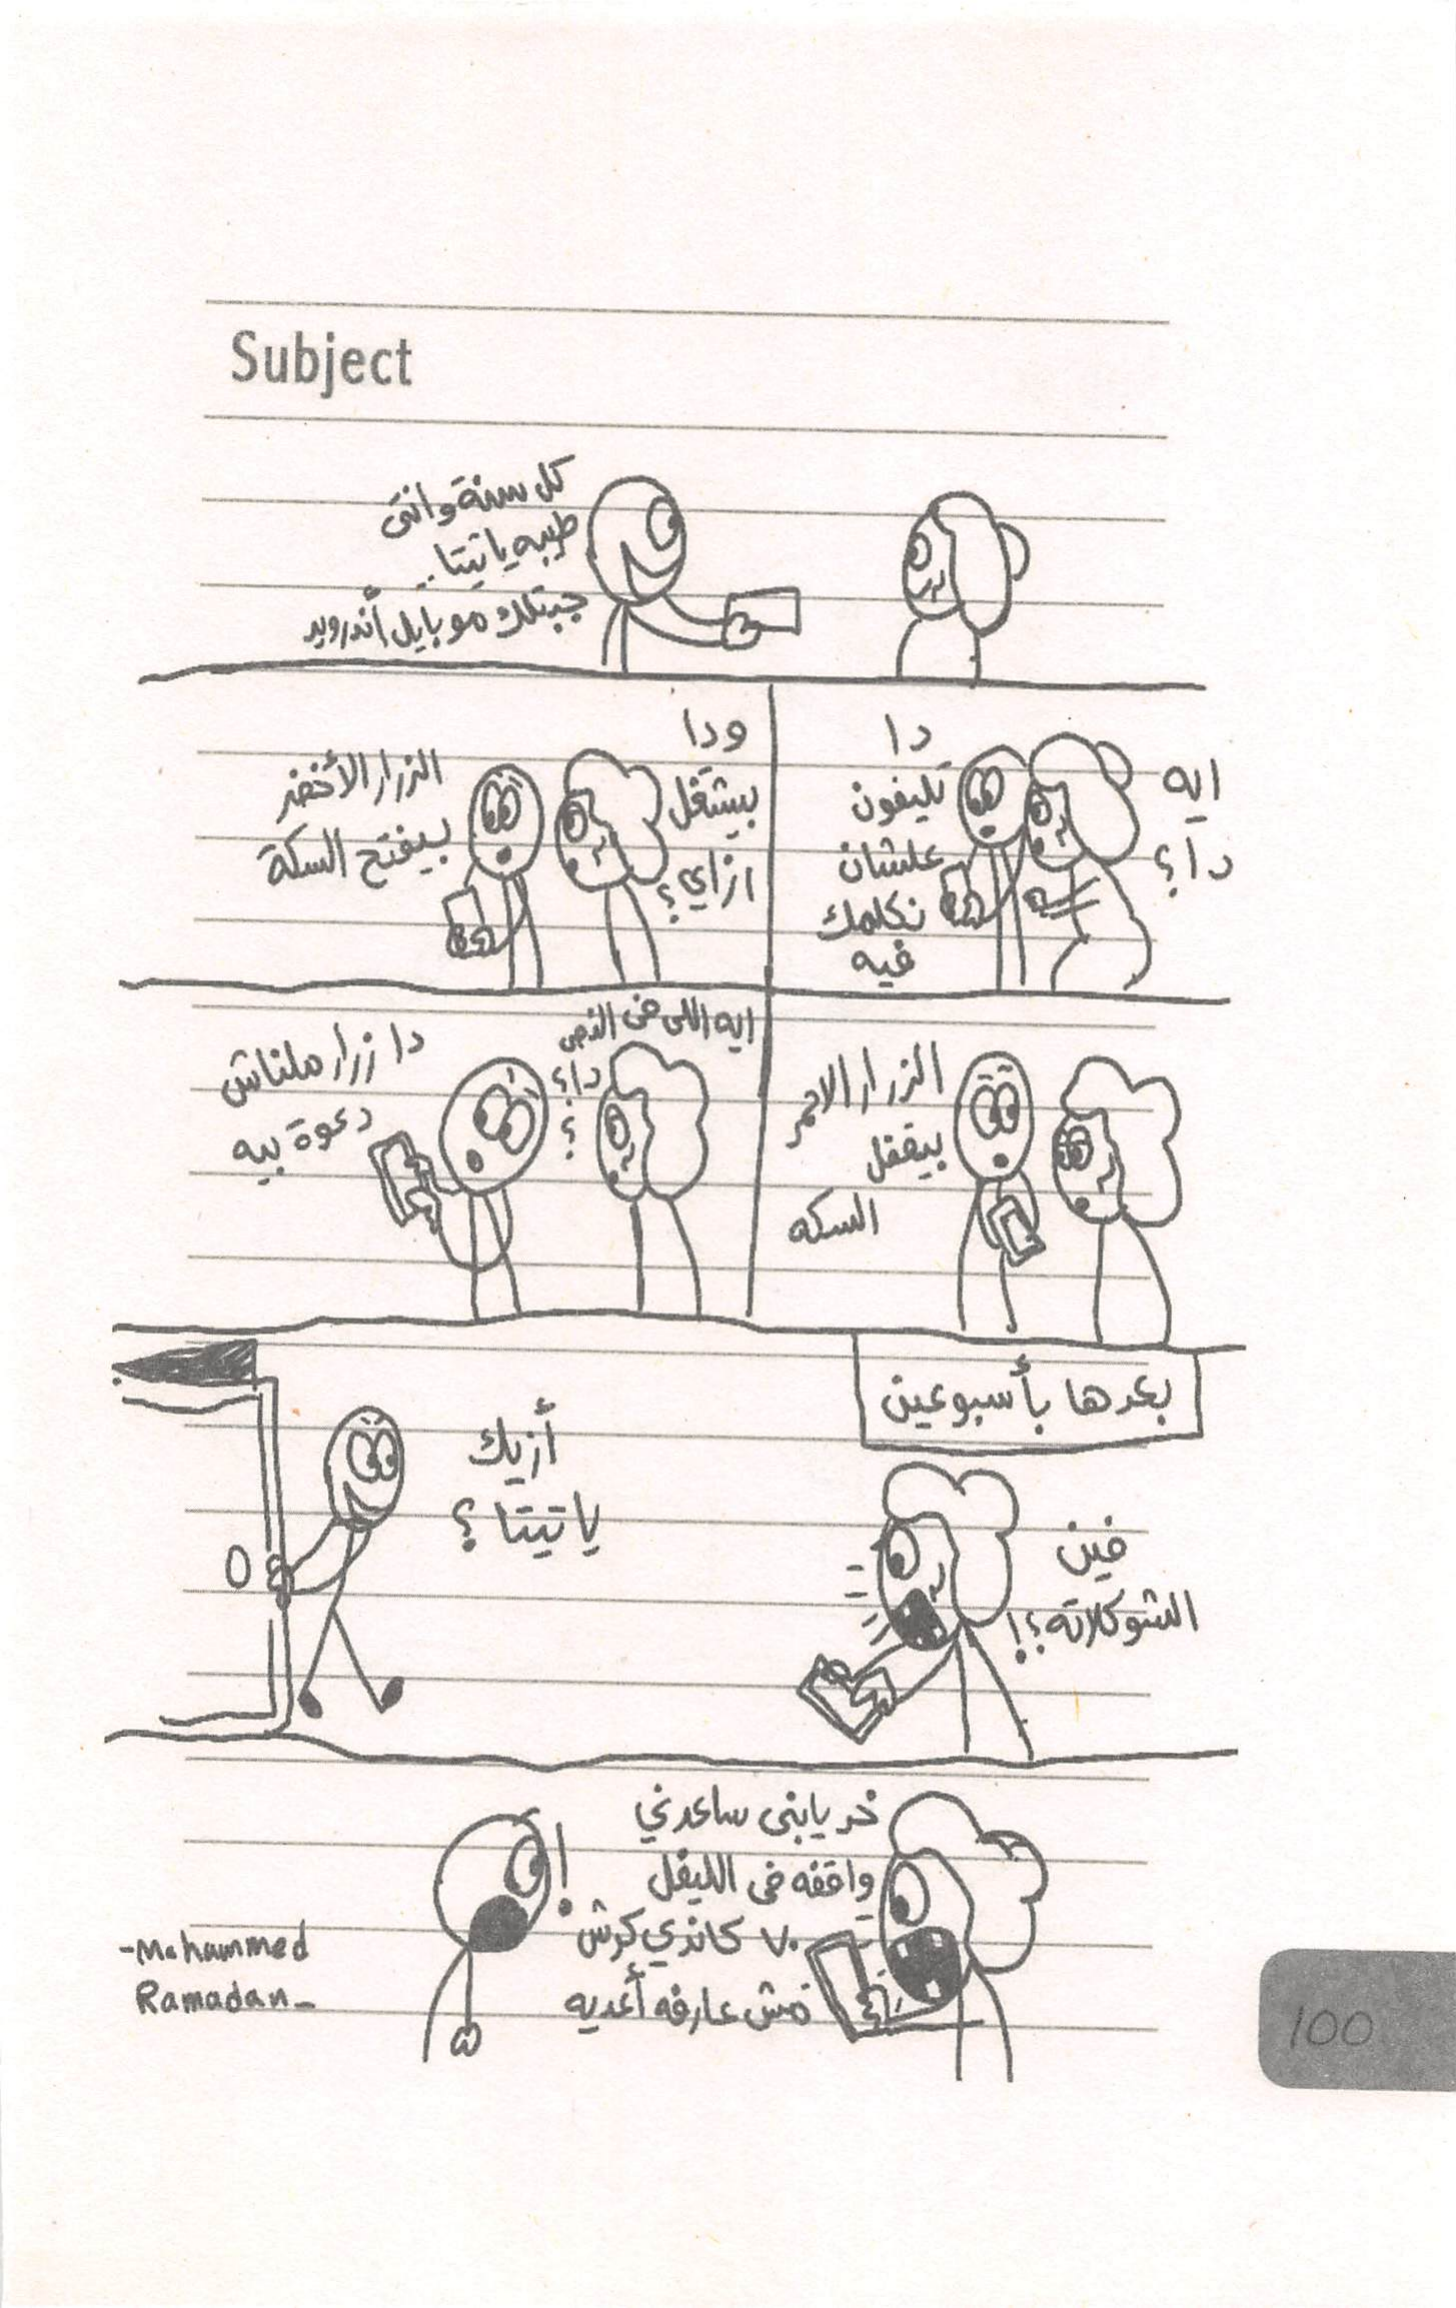 Subject
كل سنة وانتى
طيبه ياتيتا..
جبتلك موبايل أندرويد
ايه
دا؟
دا
تليفون
علشان
نكلمك
فيه
ودا
بيشتغل
ازاي؟
الزرار الأخضر
بيفتح السكة
الزرار الاحمر
بيقفل
السكه
ايه اللى فى النص
دا؟
؟
دا زرار ملناش
دعوة بيه
بعدها بأسبوعين
أزيك
ياتيتا؟
فين
الشوكلاته؟!
خد يابنى ساعدني
واقفه فى الليفل
٧٠ كاندي كرش
مش عارفه أعديه
!
-Mohammed
Ramadan-
100